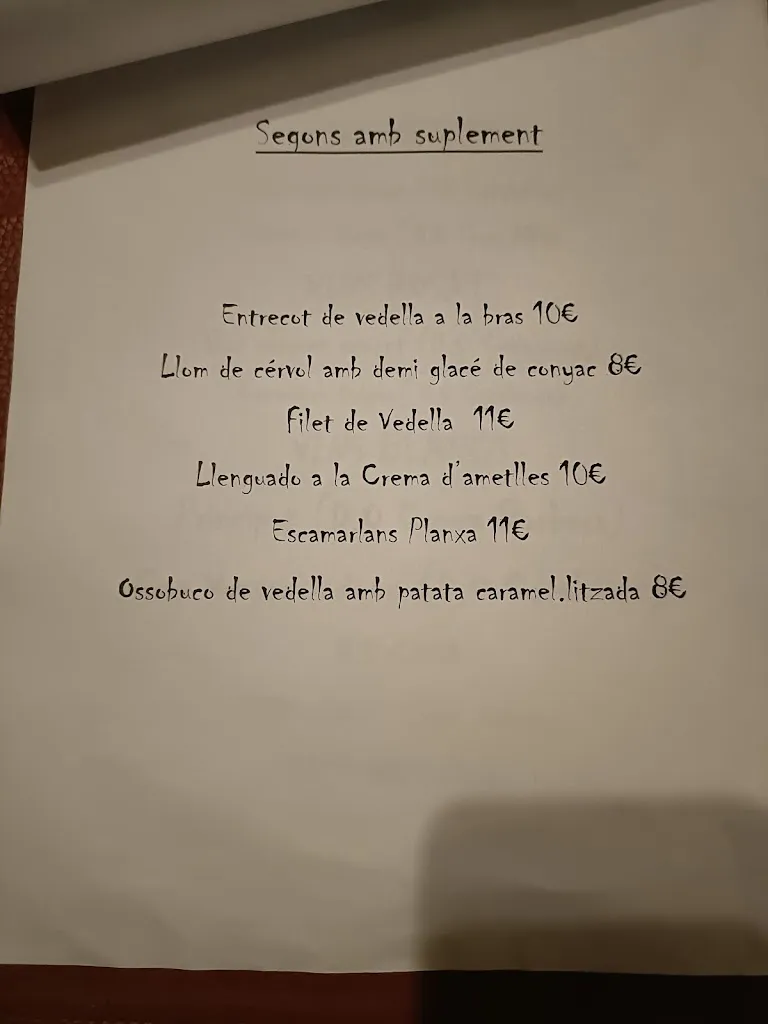 Segons amb suplement
Entrecot de vedella a la bras 10€
Llom de cérvol amb demi glacé de conyac 8€
Filet de Vedella 11€
Llenguado a la Crema d'ametlles 10€
Escamarlans Planxa 11€
Ossobuco de vedella amb patata caramel.litzada 8€